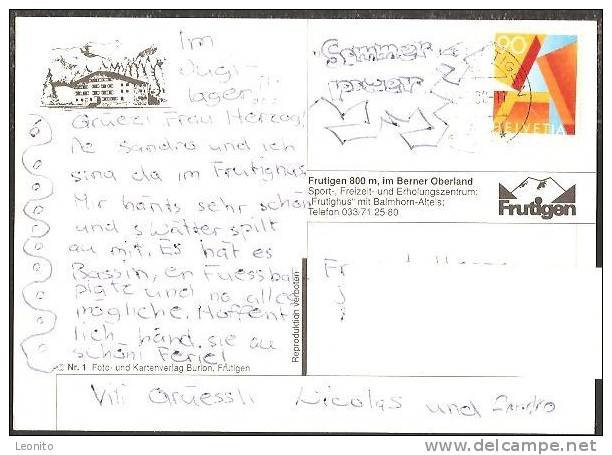 Im
Jugi-
lager...
Grüezi Frau Herzog!
De Sandro und ich
sind da im Frutighus.
Mir händs sehr schön
und s'Wätter spilt
au mit. Es hät es
Bassin, en Fuessball-
platz und no alles
mögliche. Hoffent-
lich händ sie au
schöni Ferie!
Nr. 1 Foto- und Kartenverlag Burlon, Frutigen
Vili Grüessli Nicolas und Sandro
Reproduktion verboten
Sommer
power
90
HELVETIA
Frutigen 800 m, im Berner Oberland
Sport-, Freizeit- und Erholungszentrum:
"Frutighus" mit Balmhorn-Altels;
Telefon 033/71 25 80
Frutigen
Leonito
www.delcampe.net